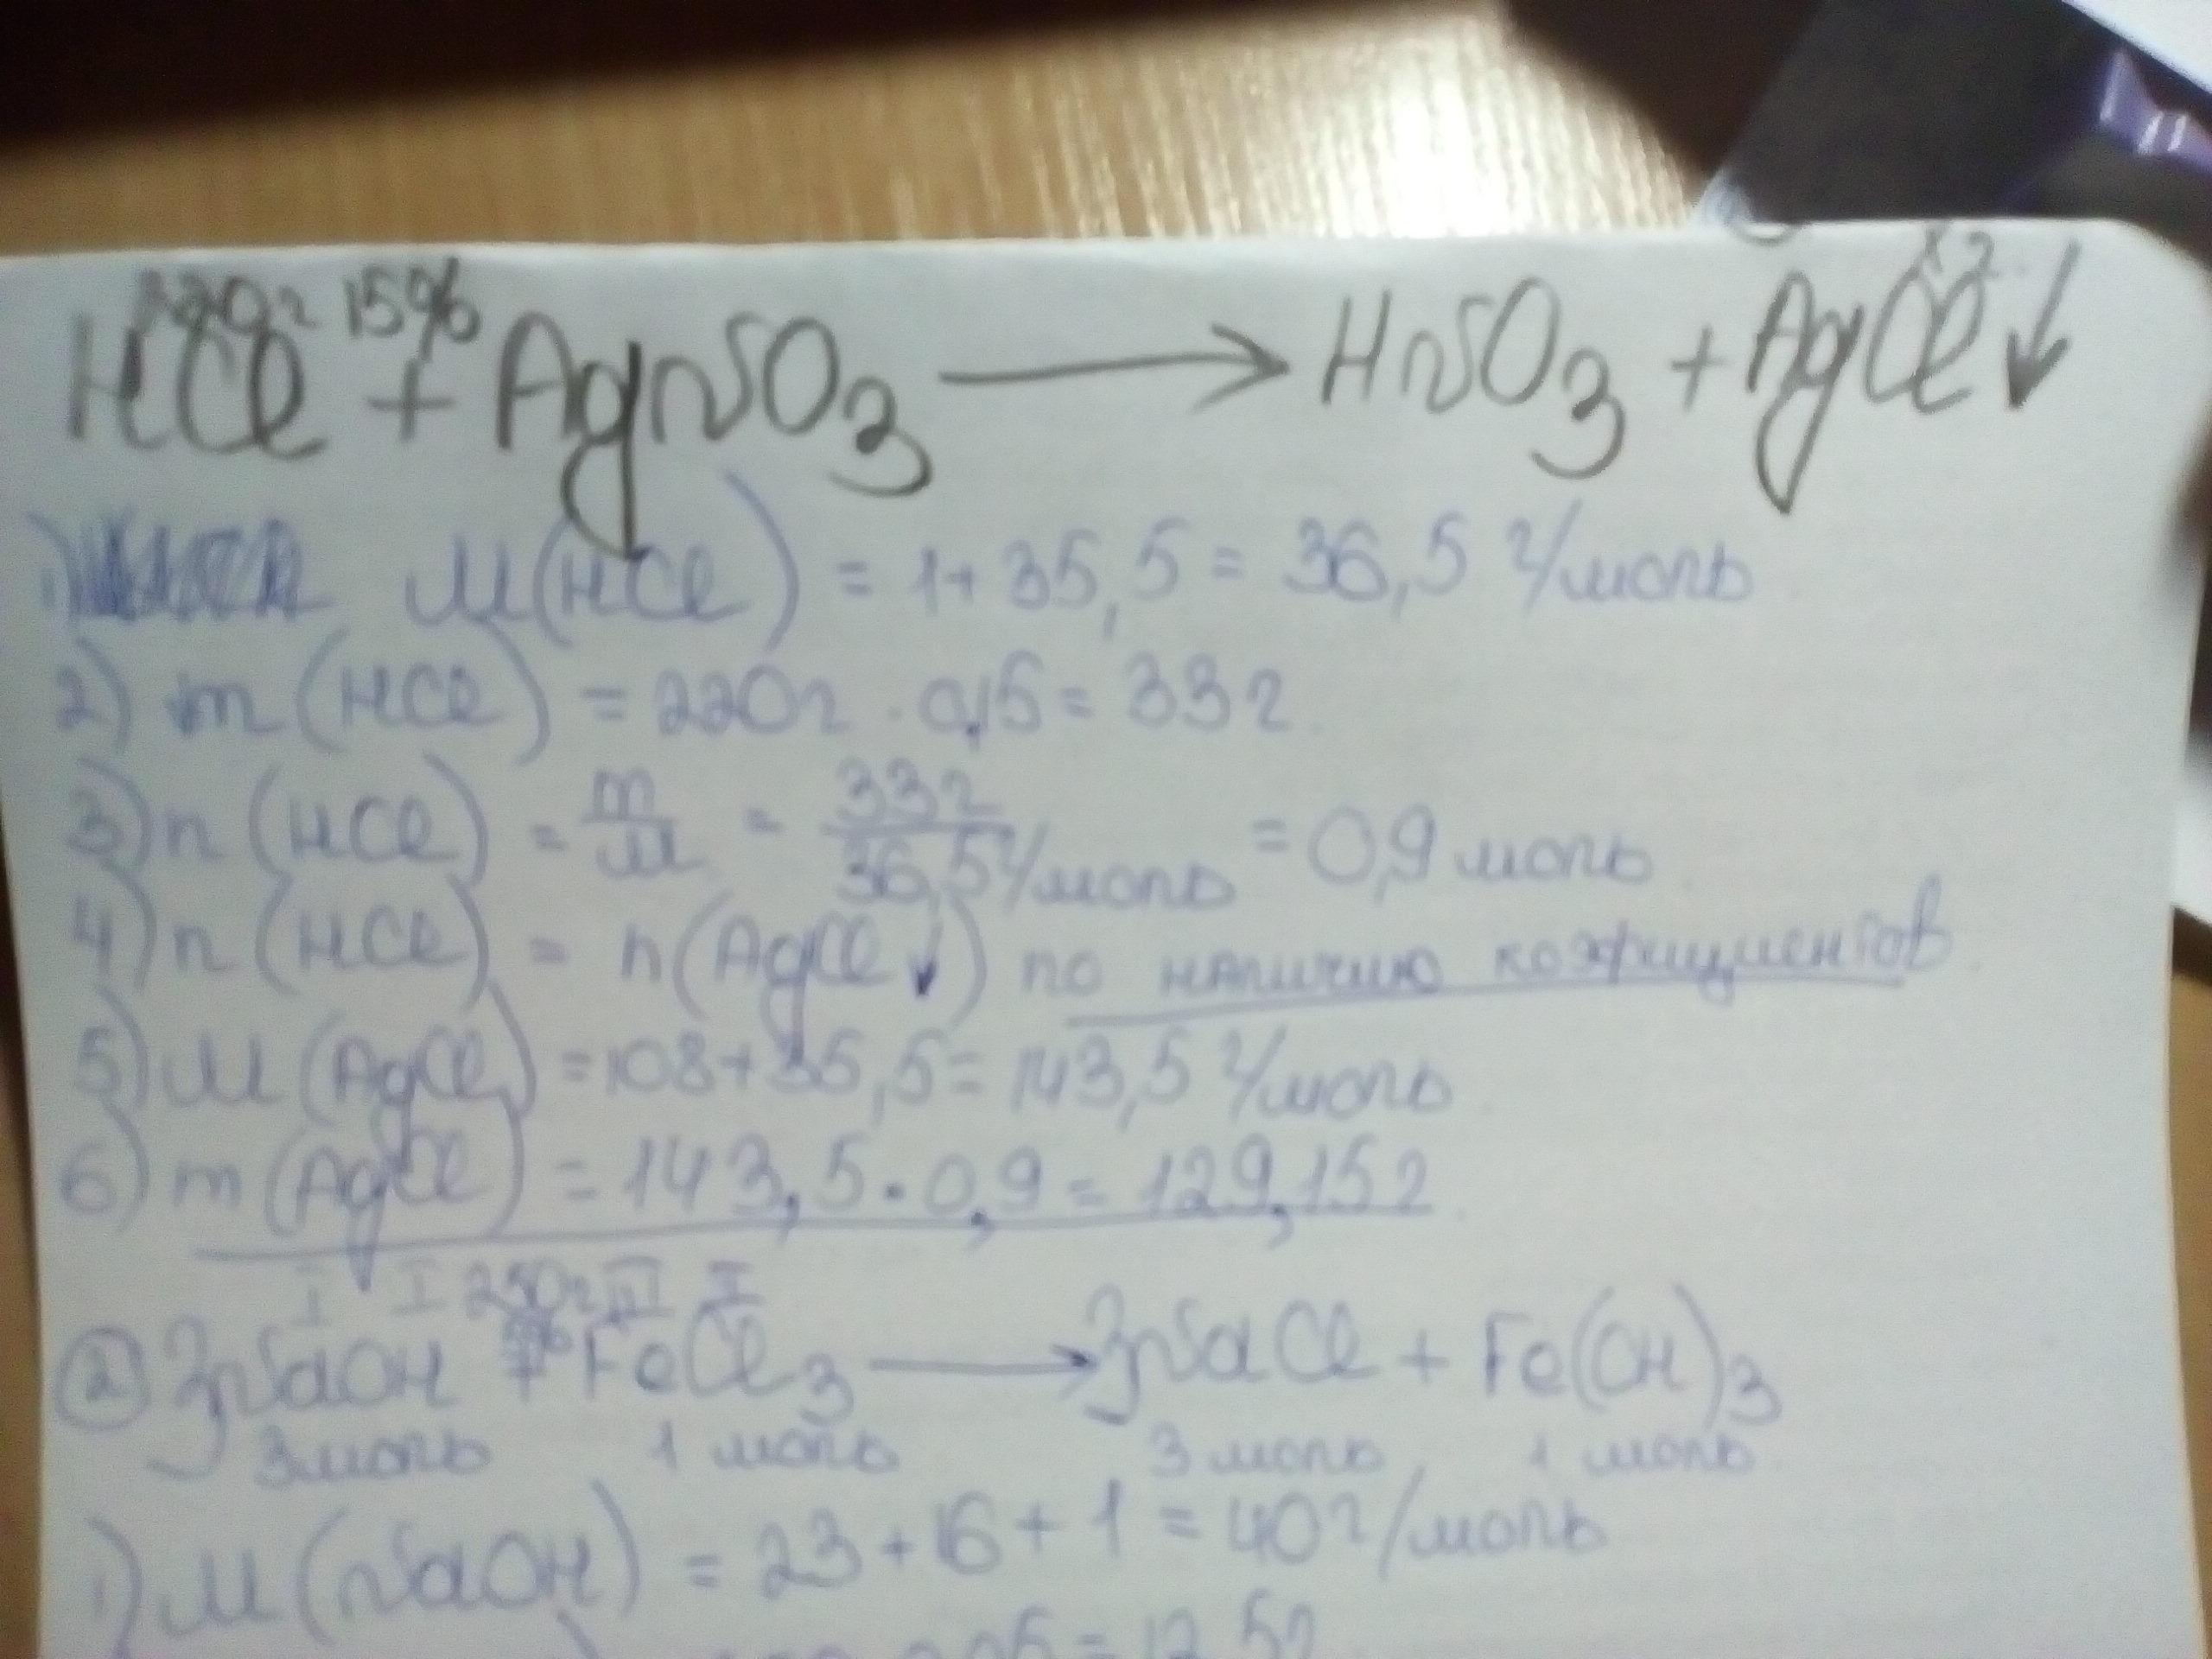 220г 15% x г
HCl + AgNO3 → HNO3 + AgCl↓
1) M(HCl) = 1+35,5 = 36,5 г/моль
2) m(HCl) = 220г · 0,15 = 33г.
3) n(HCl) = m/M = 33г/36,5г/моль = 0,9 моль
4) n(HCl) = n(AgCl↓) по наличию коэфициентов.
5) M(AgCl) = 108+35,5 = 143,5 г/моль
6) m(AgCl) = 143,5·0,9 = 129,15г.
I I 250г III I
② 3NaOH + 5% FeCl3 → 3NaCl + Fe(OH)3
3моль 1 моль 3 моль 1 моль
1) M(NaOH) = 23+16+1 = 40г/моль
0,05 = 12,5г